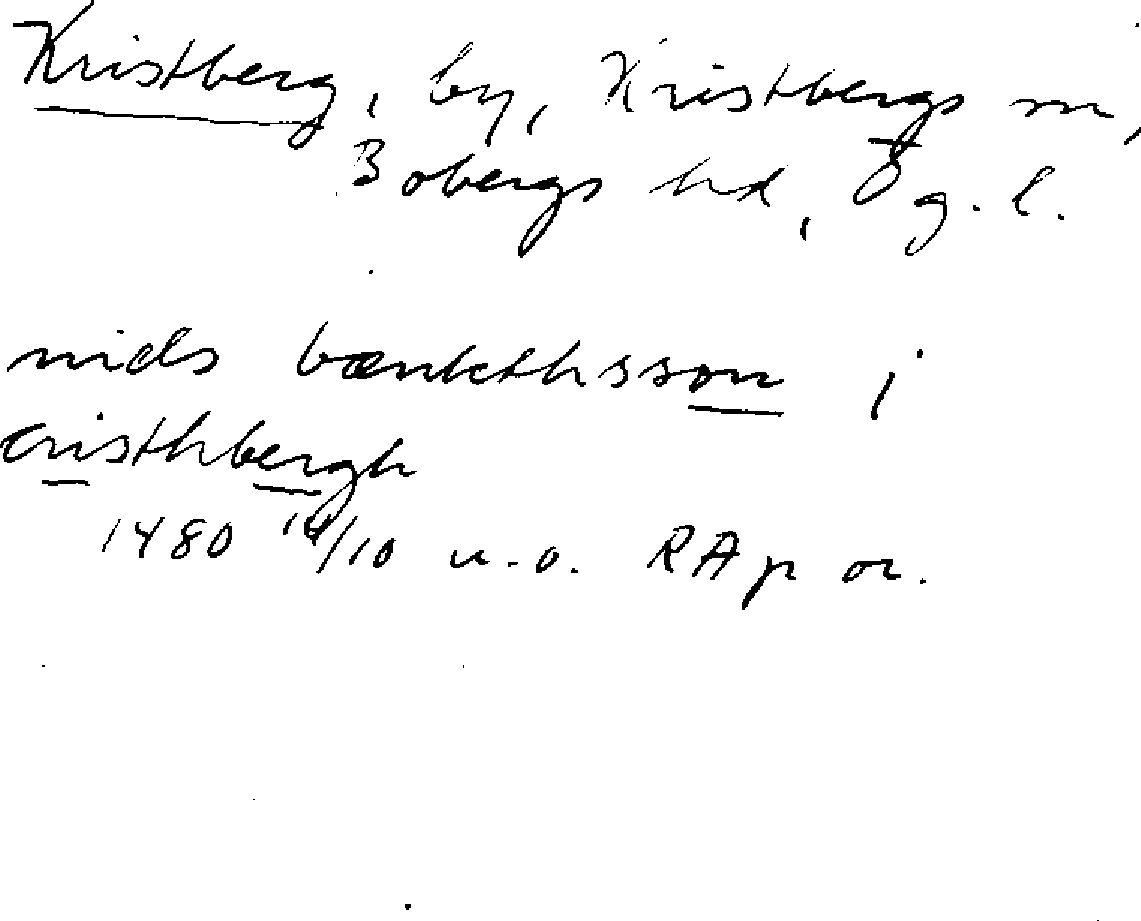 Kristberg, by, Kristbergs sn,
Bobergs hd, Ög. l.
niels bænkthsson i
cristhbergh
1480 14/10 u.o. RAp or.